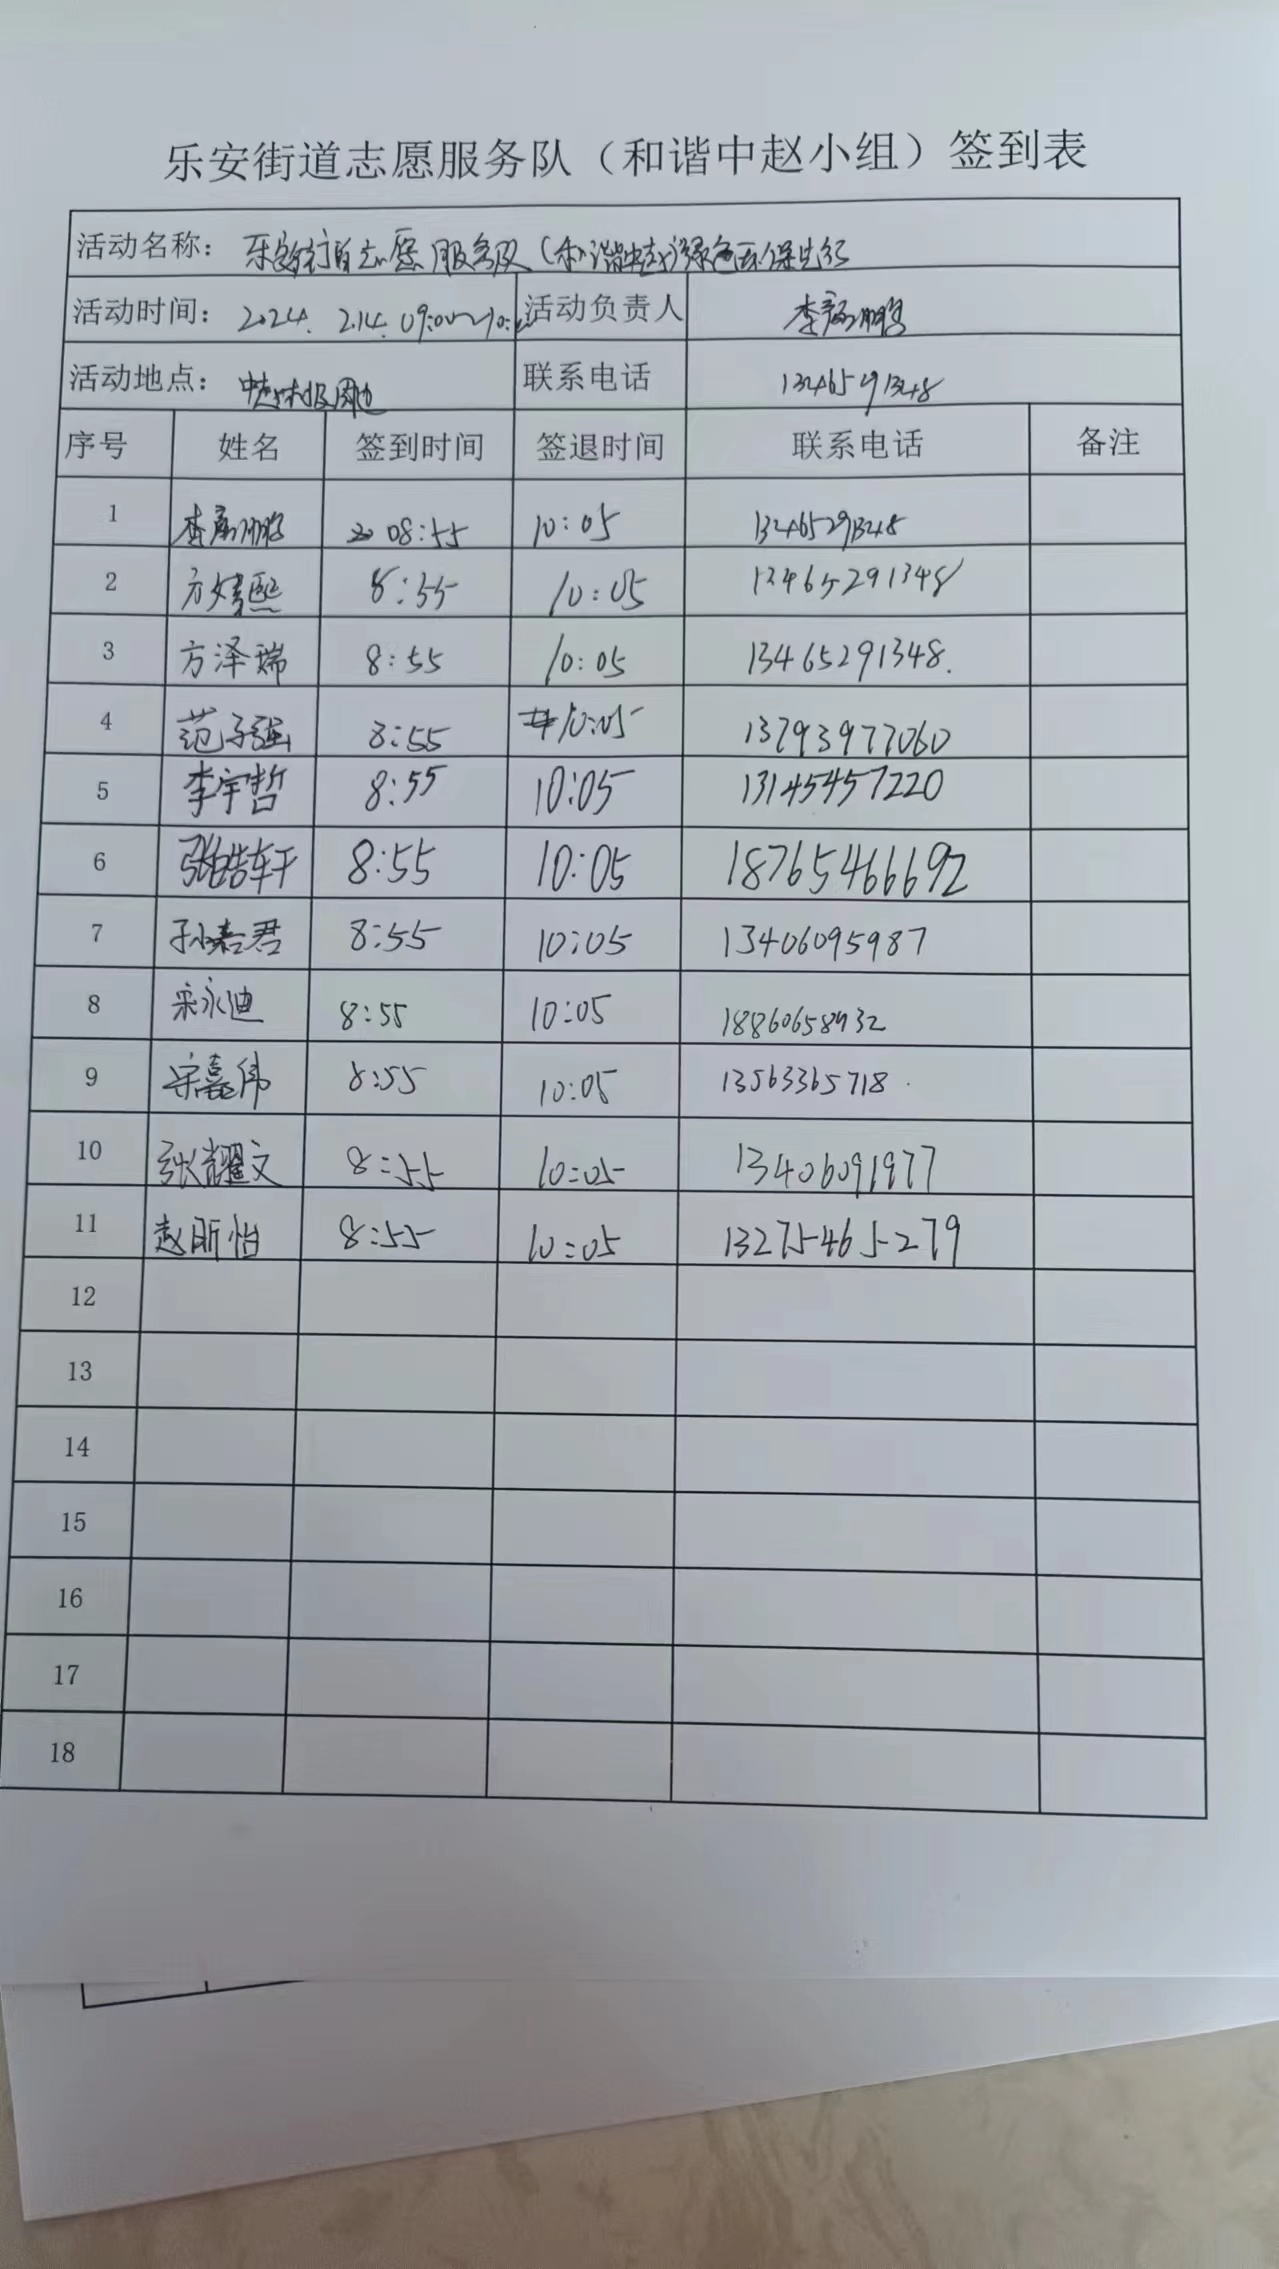 乐安街道志愿服务队（和谐中赵小组）签到表
活动名称： 乐安街道志愿服务队（和谐中赵）绿色环保出行
活动时间： 2024. 2.14. 09:00~10: 活动负责人 李鹏
活动地点： 中赵村及周边 联系电话 13465291348
序号 姓名 签到时间 签退时间 联系电话 备注
1 李鹏 08:55 10:05 13465291348
2 方婧熙 8:55 10:05 13465291348
3 方泽瑞 8:55 10:05 13465291348.
4 范子强 8:55 10:05 13793977060
5 李宇哲 8:55 10:05 13145457220
6 张皓轩 8:55 10:05 18765466692
7 孙嘉君 8:55 10:05 13406095987
8 宋永迪 8:55 10:05 18860658932
9 宋嘉伟 8:55 10:05 13563365718
10 张耀文 8:55 10:05 13406091977
11 赵昕怡 8:55 10:05 13275465279
12
13
14
15
16
17
18